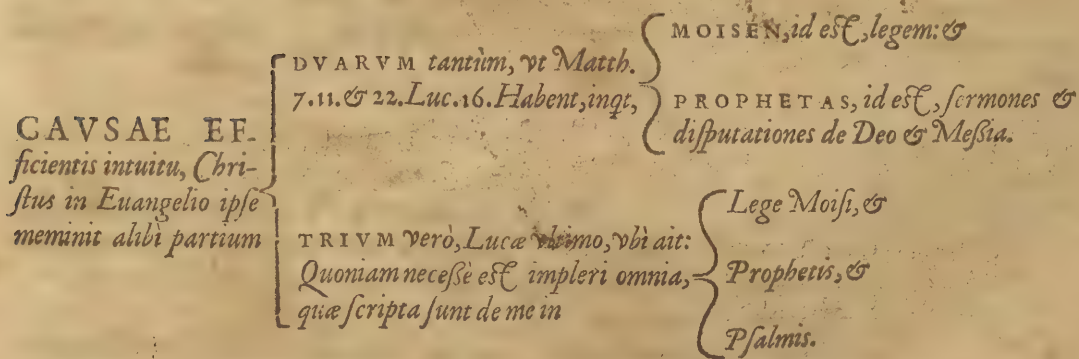 CAVSAE EF-
ficientis intuitu, Chri-
ſtus in Euangelio ipſe
meminit alibì partium
DVARVM tantùm, vt Matth.
7.11.& 22.Luc.16.Habent,inqt,
MOISEN,id eſt,legem:&
PROPHETAS,id eſt,ſermones &
diſputationes de Deo & Meßia.
TRIVM verò,Lucæ vltimo,vbì ait:
Quoniam neceßè eſt impleri omnia,
quæ ſcripta ſunt de me in
Lege Moiſi,&
Prophetis,&
Pſalmis.